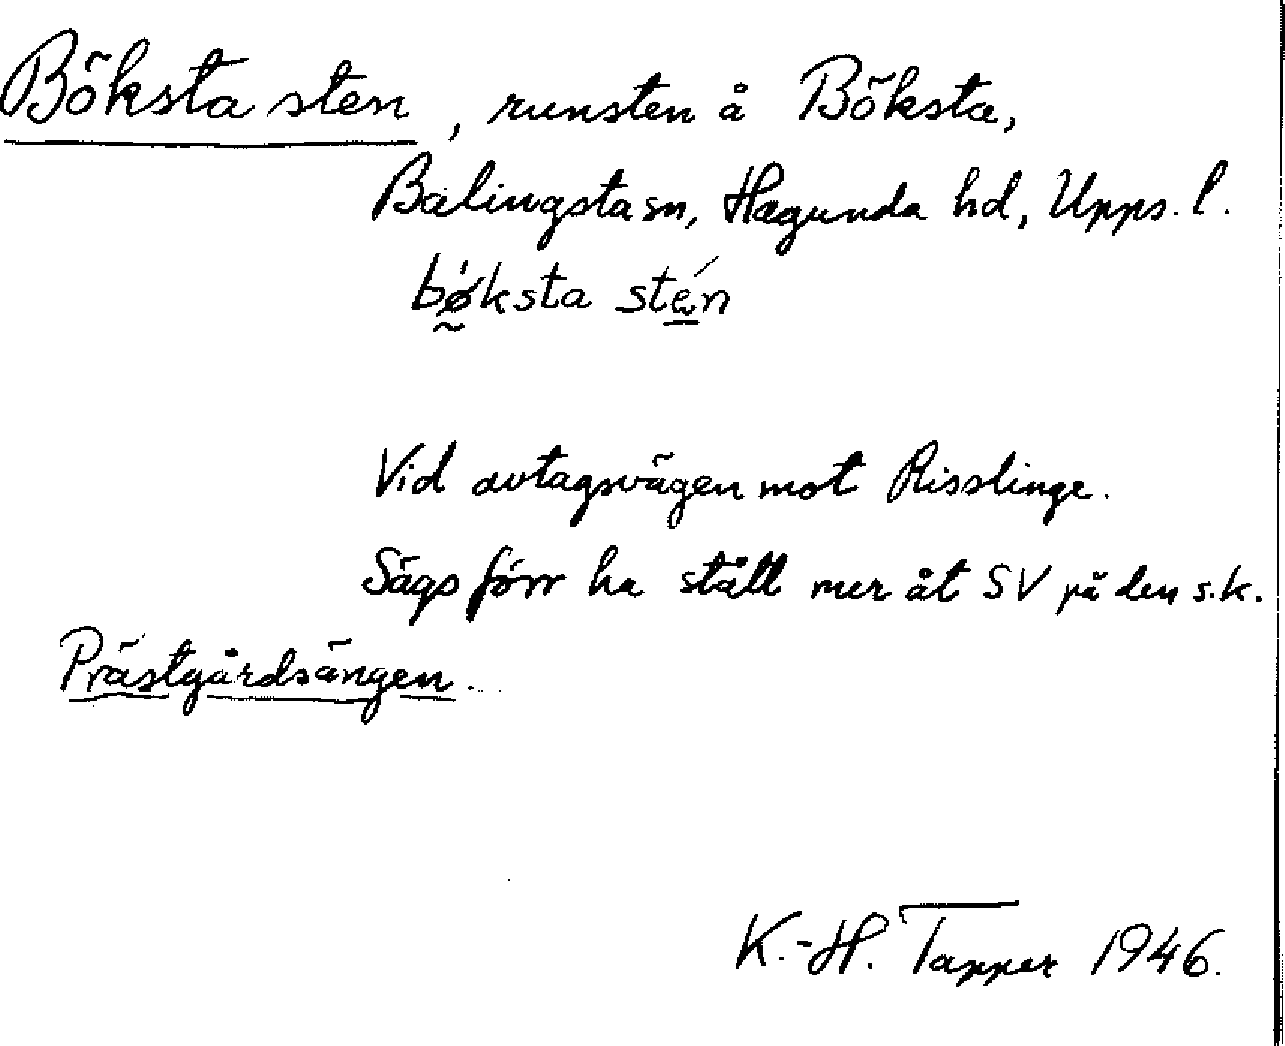 Böksta sten, runsten å Böksta,
Balingsta sn, Hagunda hd, Upps. l.
bǿ̰ksta sté̠n
Vid avtagsvägen mot Risslinge.
Sägs förr ha ställ mer åt SV på den s.k.
Prästgårdsängen.
K.-H. Tapper 1946.